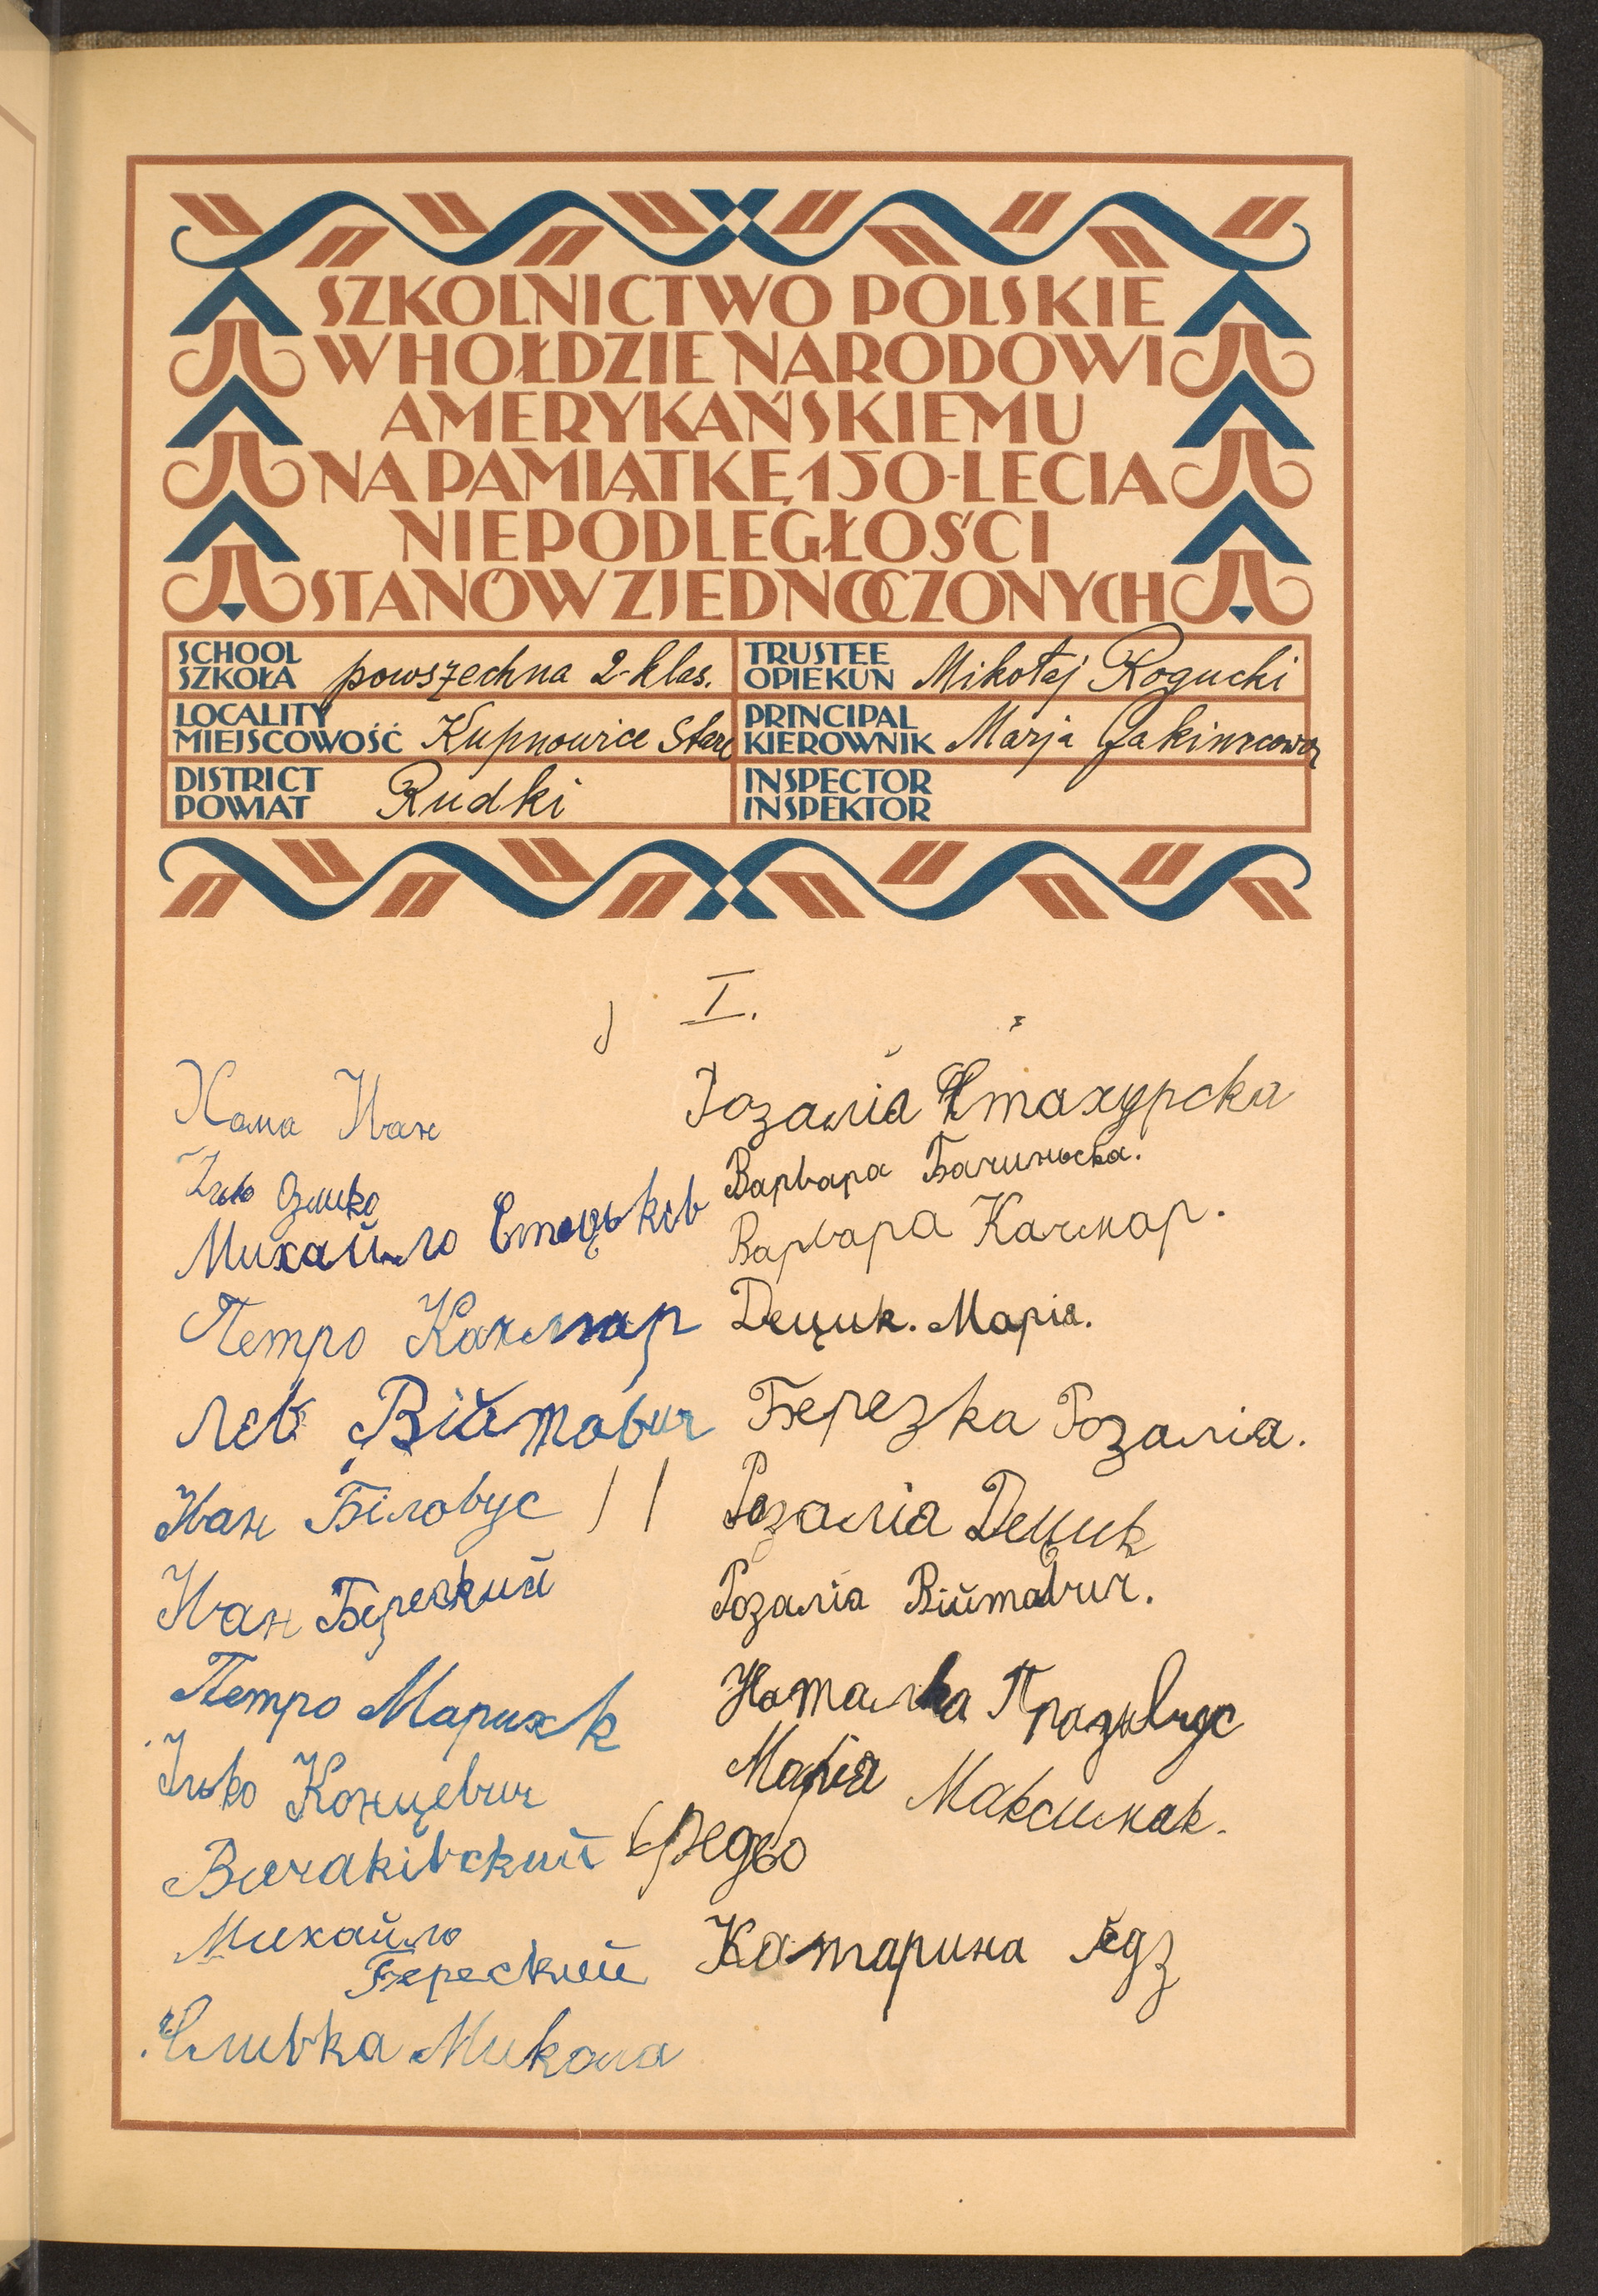 SZKOLNICTWO POLSKIE
W HOŁDZIE NARODOWI
AMERYKAŃSKIEMU
NA PAMIĄTKĘ 150-LECIA
NIEPODLEGŁOŚCI
STANÓW ZJEDNOCZONYCH
SCHOOL
SZKOŁA powszechna 2-klas.
TRUSTEE
OPIEKUN Mikołaj Roguchi
LOCALITY
MIEJSCOWOŚĆ Kupnowice Stare
PRINCIPAL
KIEROWNIK Marja
DISTRICT
POWIAT Rudki
INSPECTOR
INSPEKTOR
I.
Хама Иван
Ілько
Михайло Стецьків
Петро Качмар
Лев Війтович
Иван Біловус
Иван Береский
Петро Марих
Ілько Концевич
Вичаківский Федьо
Михайло
Береский
Сливка Микола
Розалїя Стахурска
Варвара Бачиньска.
Варвара Качмар.
Децик. Марія.
Березка Розалия.
Розалія Децик
Розалїа Війтович.
Наталька Празновус
Марія Максимак.
Катарина Ґедз